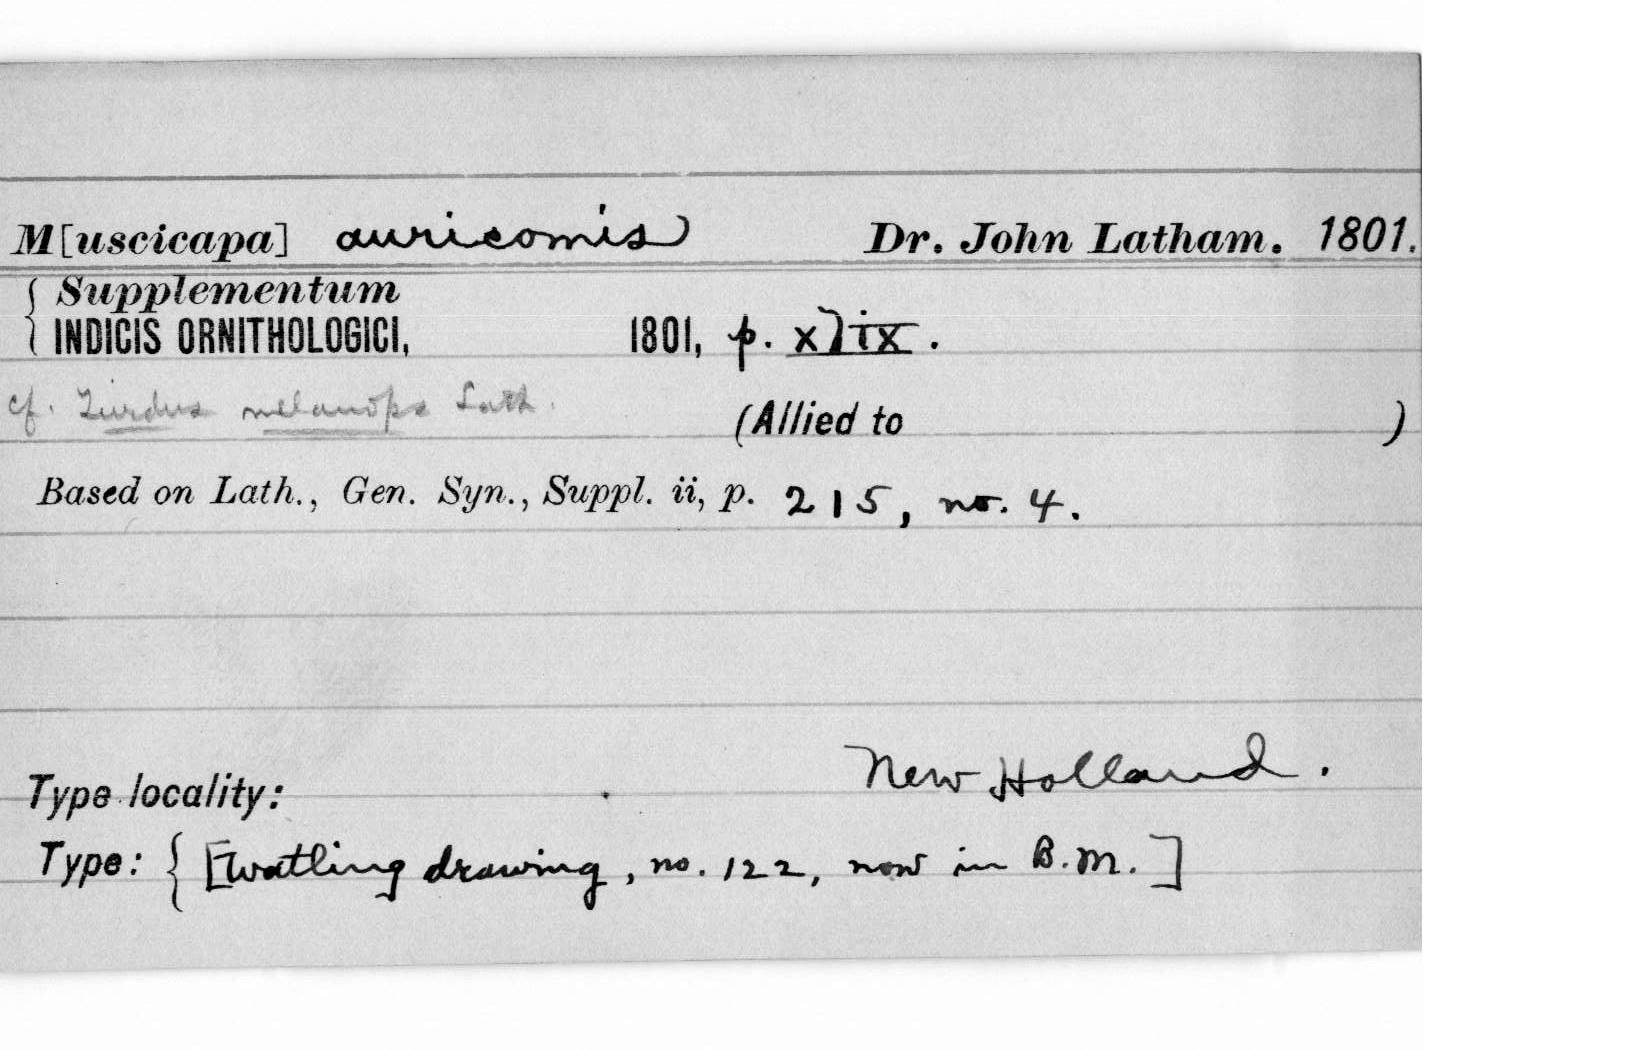 M[uscicapa] auricomis Dr. John Latham. 1801.
{ Supplementum
INDICIS ORNITHOLOGICI, 1801, p. xlix.
cf. Turdus melanops Lath.
(Allied to )
Based on Lath., Gen. Syn., Suppl. ii, p. 215, no. 4.
New Holland.
Type locality:
Type: { [Watling drawing, no. 122, now in B.M.]